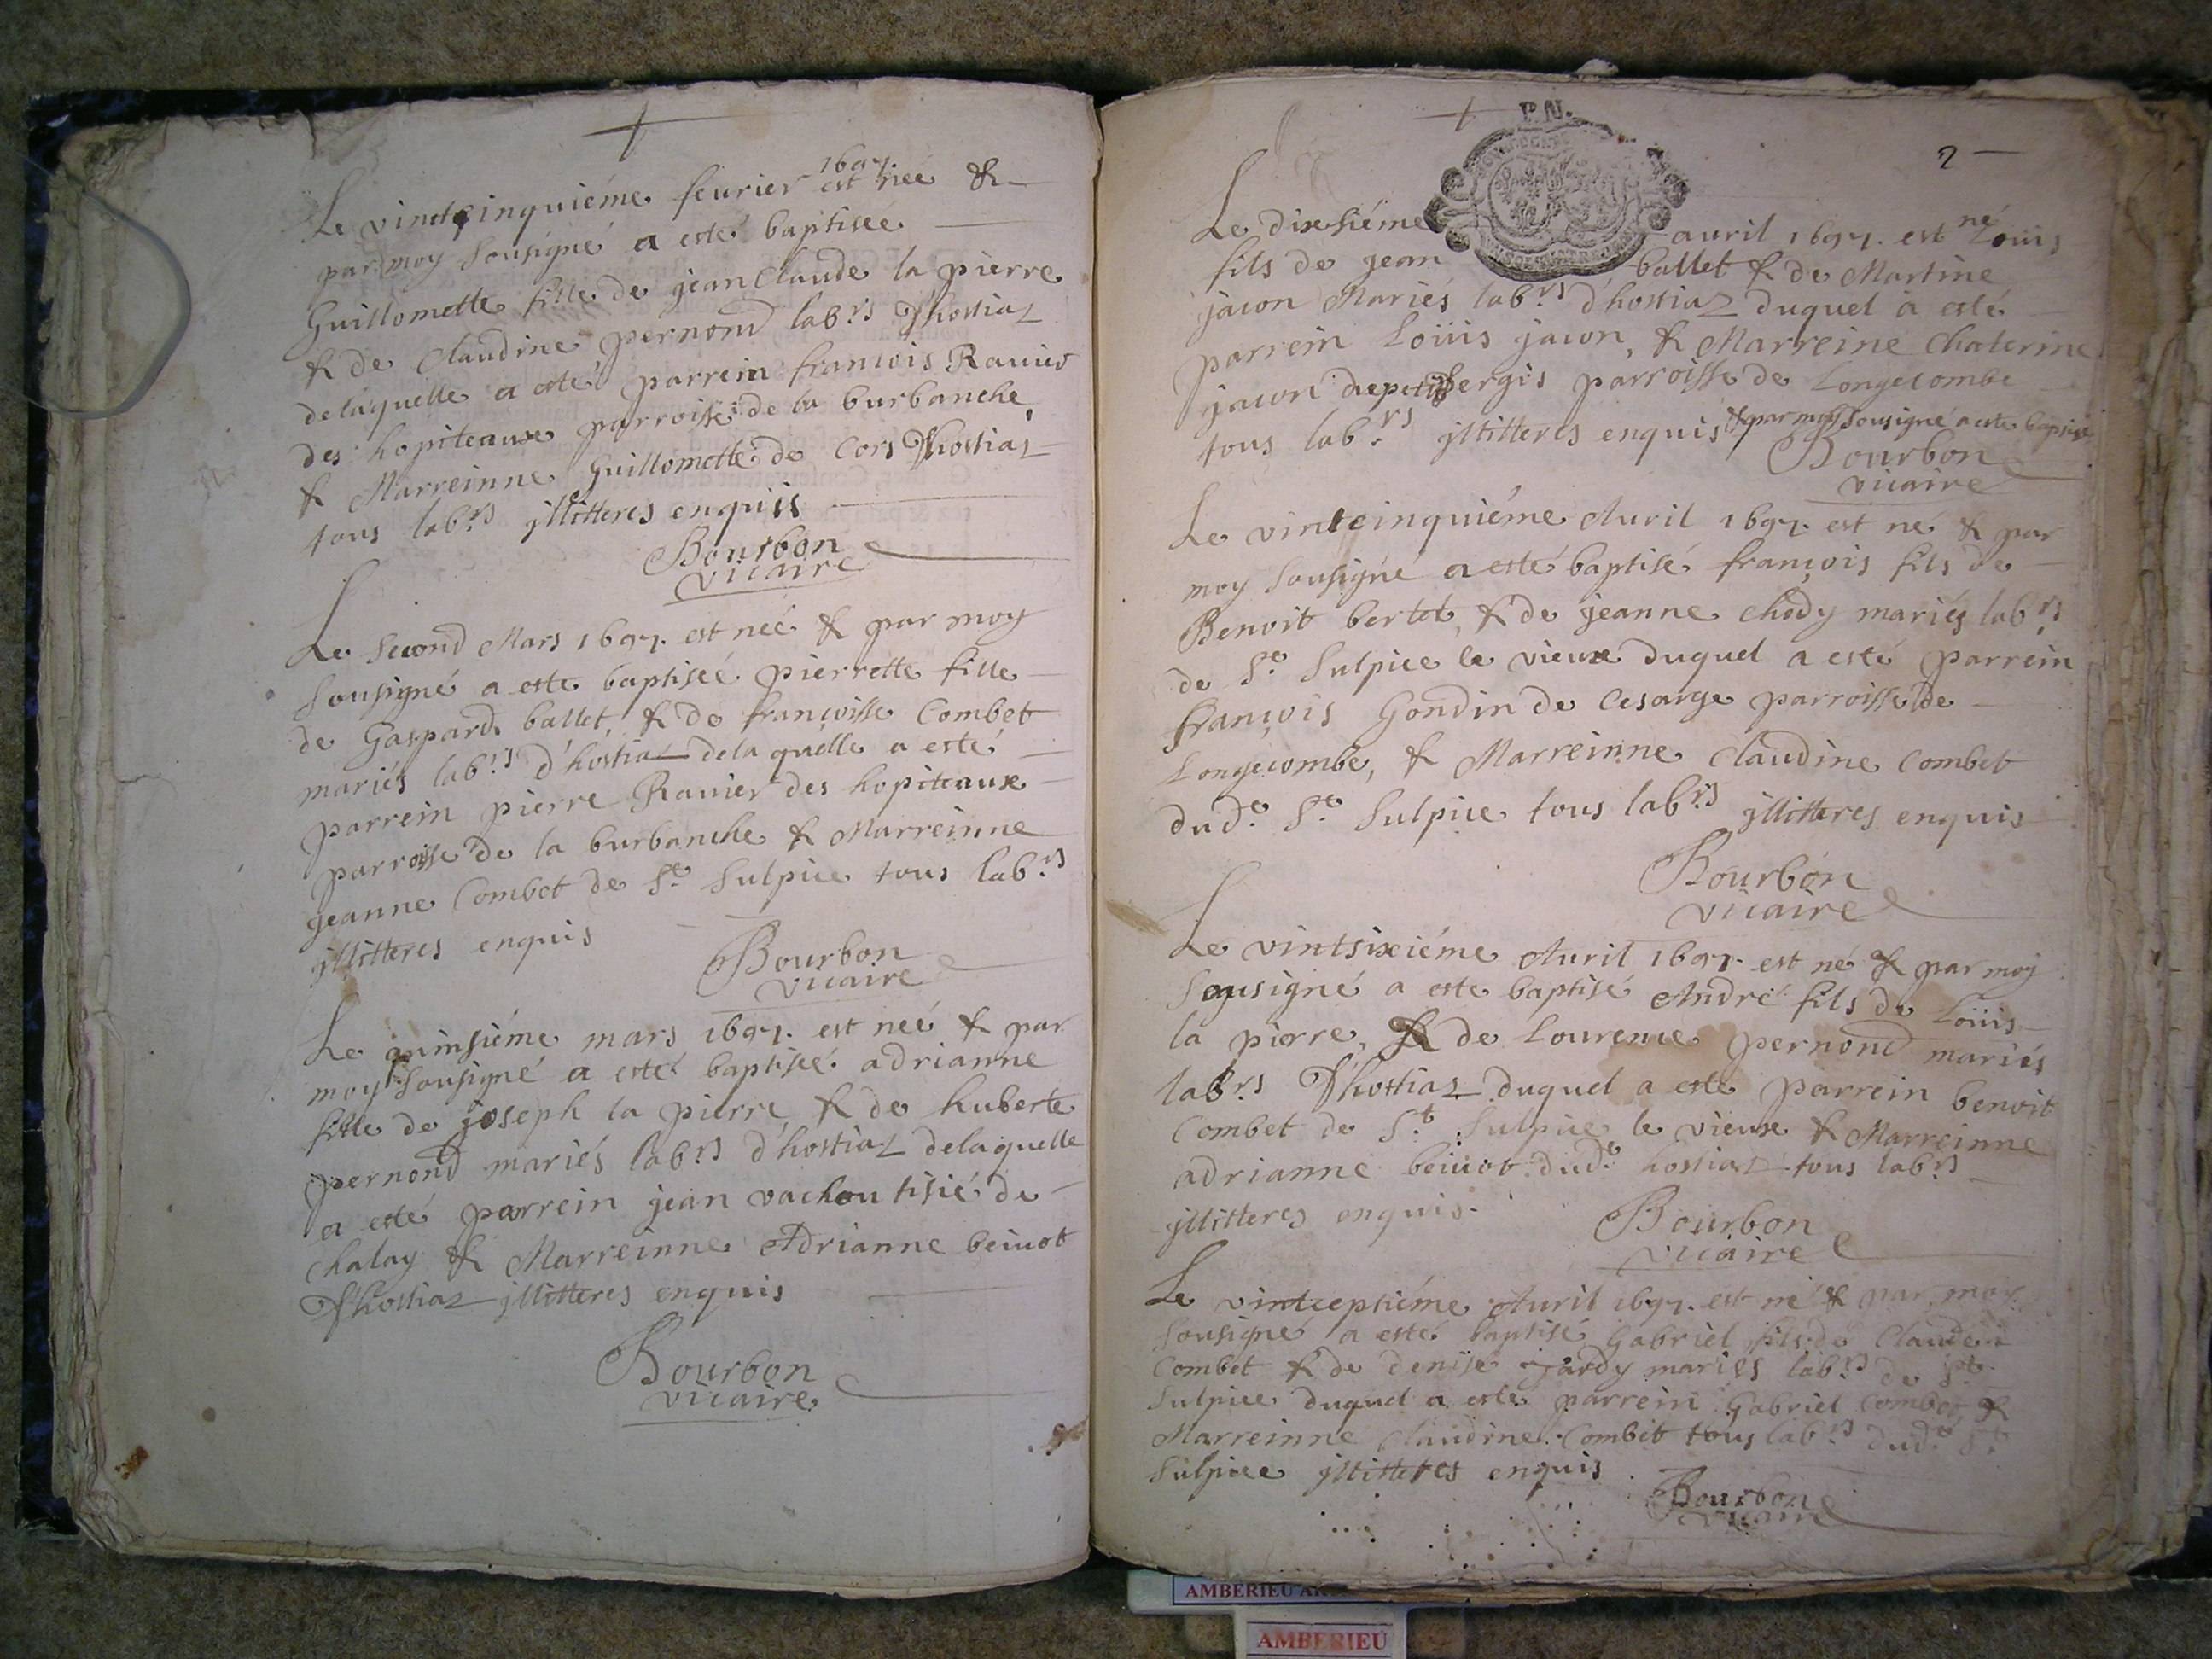 Le vintcinquiéme feurier 1697. est née &
par moy Sousigné a esté baptiseé
Guillomette fille de jean Claude la pierre
& de Claudine pernond lab.rs d'hostiaz
delaquelle a esté parrein francois Rauier
des hopiteaux parroisse de la burbanche
& Marreinne Guillomette de Cors d'hostiaz
tous lab.rs jllitteres enquis
Bourbon
vicaire
Le Second Mars 1697. est neé & par moy
Sousigné a este baptiseé pierrette fille
de Gaspard ballet, & de francoisse Combet
mariés lab.rs d'hostiaz dela quelle a esté
parrein pierre Rauier des hopiteaux
parroisse de la burbanche & Marreinne
jeanne Combet de S.t Sulpice tous lab.rs
jllitteres enquis
Bourbon
vicaire
Le quinsiéme mars 1697. est neé & par
moy Sousigné a esté baptiseé adrianne
fille de joseph la pierre & de huberte
pernond mariés lab.rs d'hostiaz delaquelle
a esté parrein jean vachou tisié de
chalay & Marreinne Adrianne beiuot
d'hostiaz jllitteres enquis
Bourbon
vicaire
P.N.
2
Le dixsiéme auril 1697. est né Loüis
fils de jean ballet & de Martine
jacon Mariés lab.rs d'hostiaz duquel a esté
parrein Loüis jacon, & Marreine Chaterine
jacon depetit bergis parroisse de Longecombe
tous lab.rs jllitteres enquis & par moy Sousigné a este baptisé
Bourbon
vicaire
Le vintcinquiéme Auril 1697. est né & par
moy Sousigné a esté baptisé françois fils de
Benoit bertet, & de jeanne chody mariés lab.rs
de S.t Sulpice le vieux duquel a esté parrein
françois Gondin de Cesarge parroisse de
Longecombe, & Marreinne Claudine Combet
dud.t S.t Sulpice tous lab.rs jllitteres enquis
Bourbon
vicaire
Le vintsixiéme Auril 1697. est né & par moy
Sousigné a este baptisé André fils de Loüis
la pierre, & de Lourence pernond mariés
lab.rs d'hostiaz duquel a esté parrein benoit
Combet de S.t Sulpice le vieux & Marreinne
adrianne beiuot dud.t hostiaz tous lab.rs
jllitteres enquis.
Bourbon
vicaire
Le vintceptiéme Auril 1697. est né & par moy
Sousigné a esté baptisé Gabriel fils de Claude
Combet & de denise jardy mariés lab.rs de S.t
Sulpice duquel a este parrein Gabriel Combet &
Marreinne Claudine Combet tous lab.rs dud.t S.t
Sulpice jllitteres enquis
Bourbon
vicaire
AMBERIEU
AMBERIEU